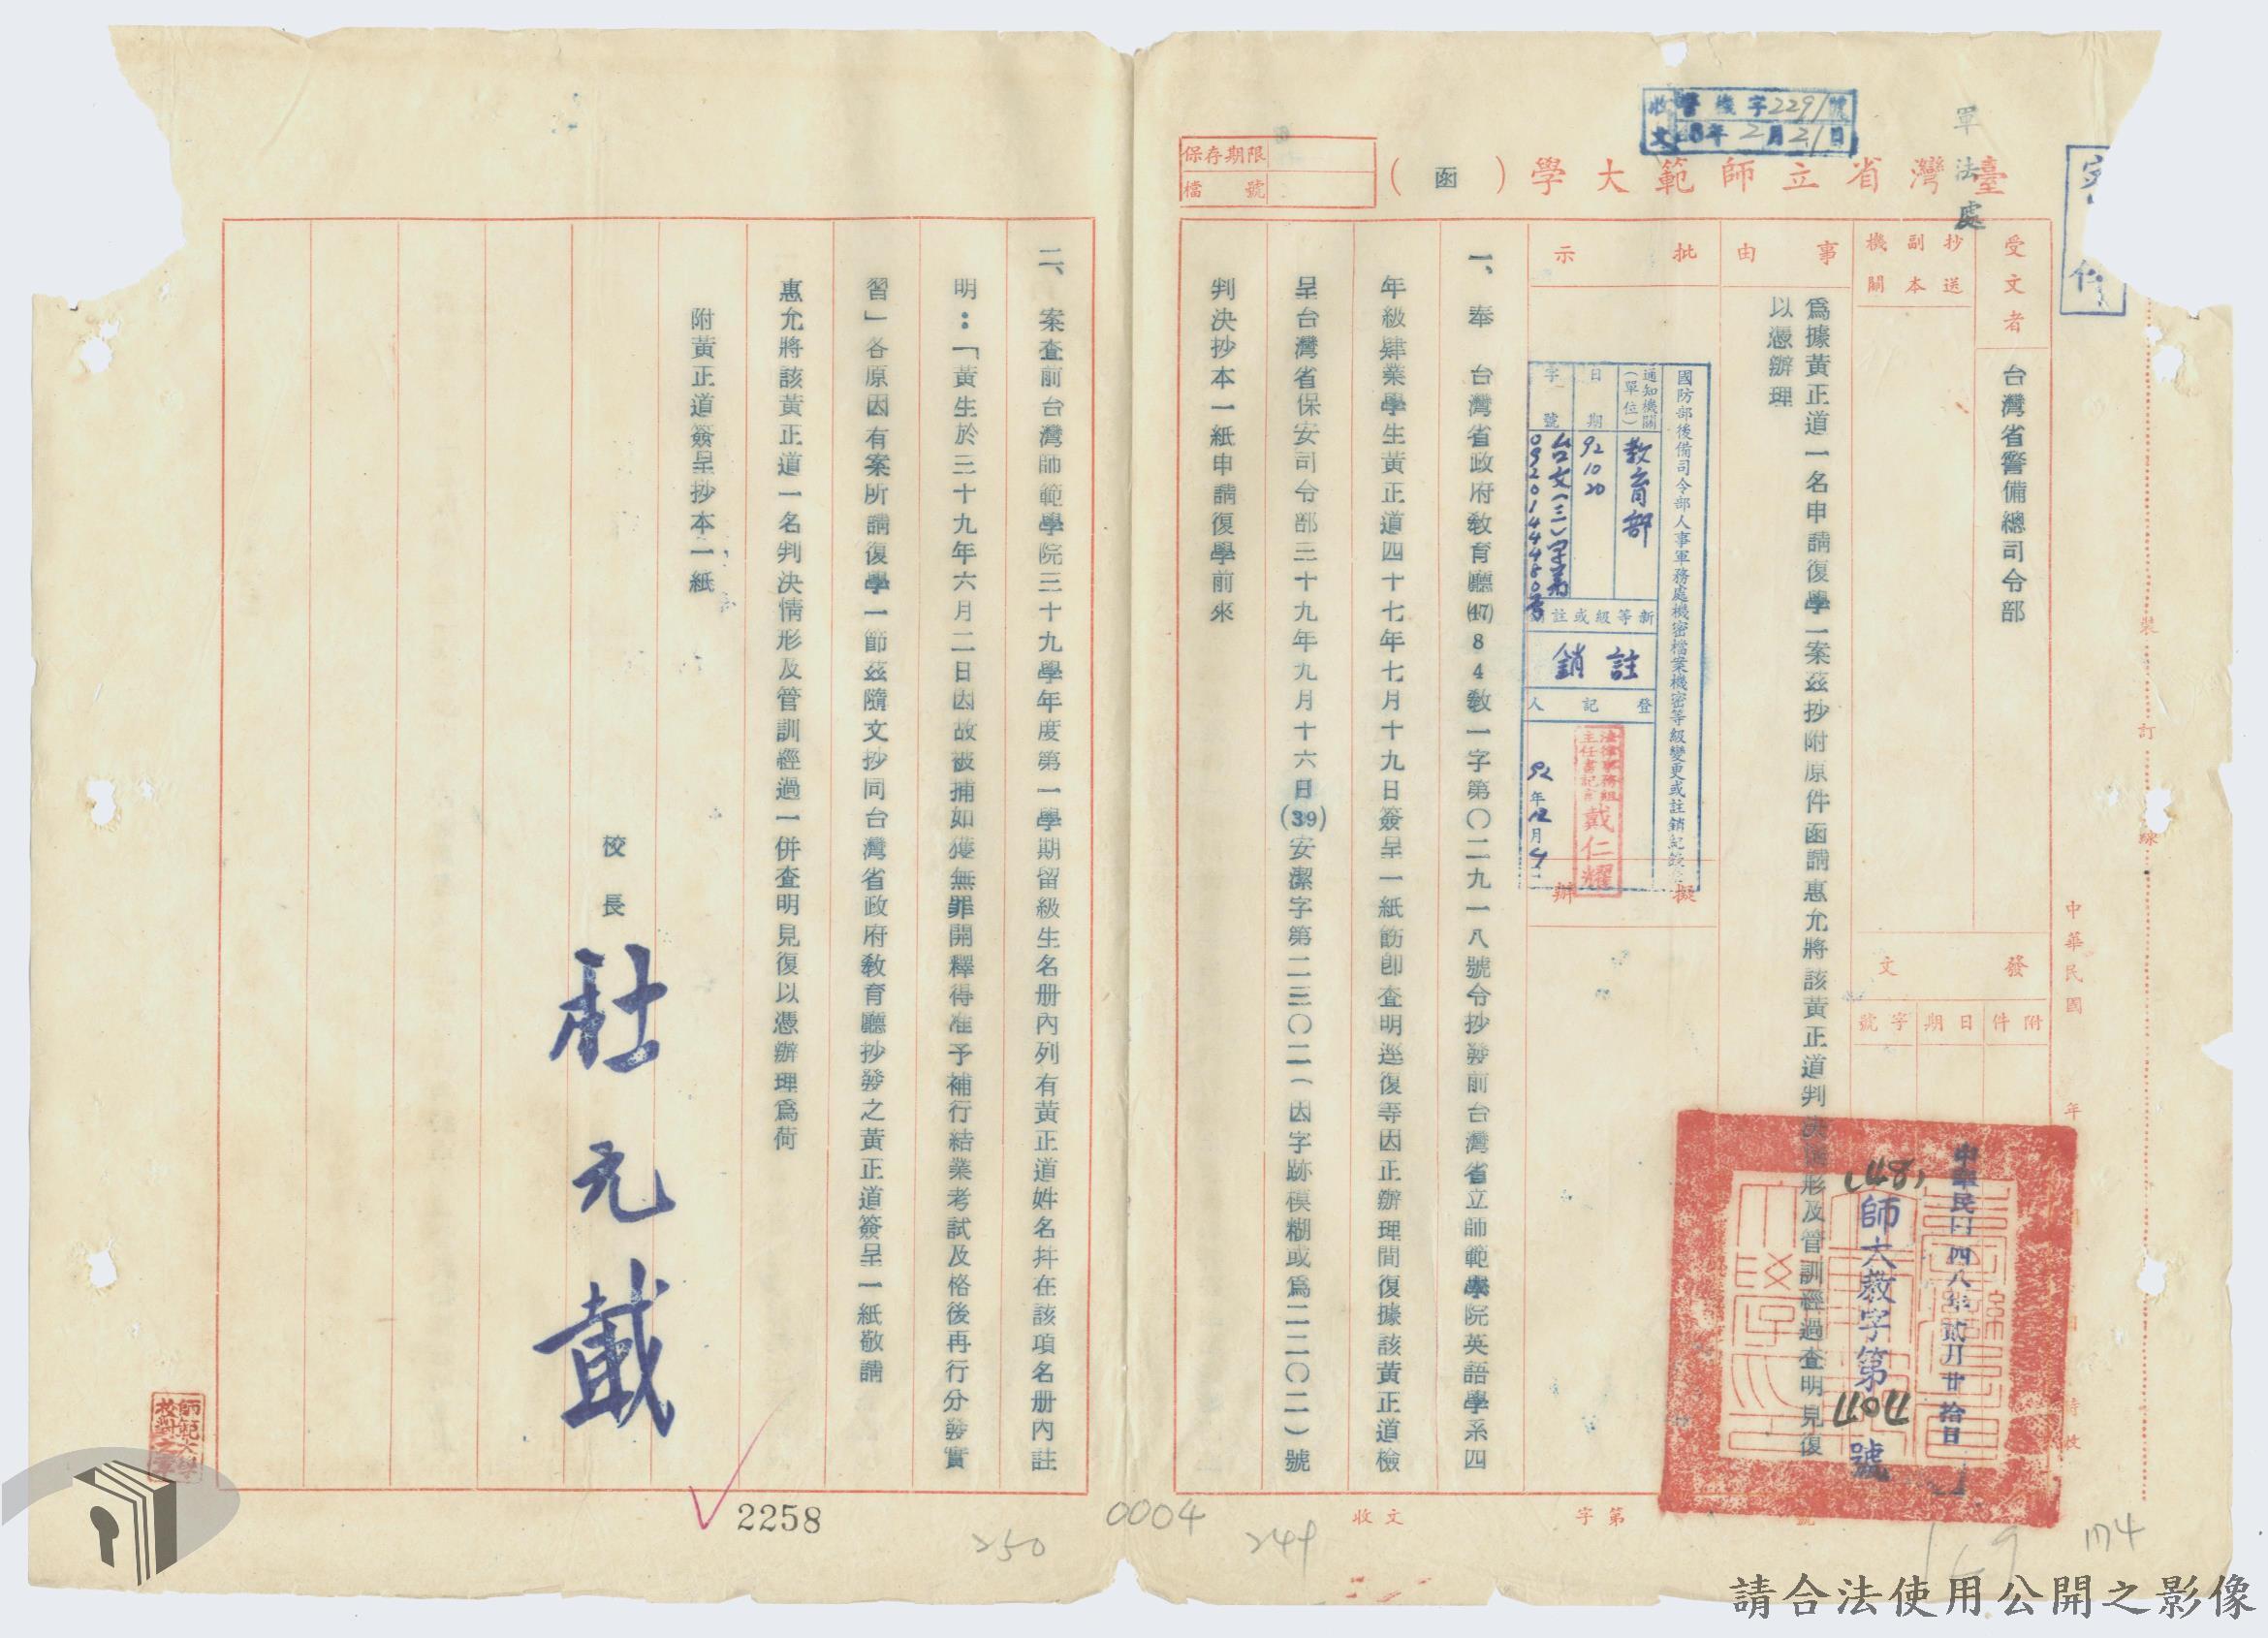 密件
軍法處
收文 警機字2291號
48年2月21日
臺灣省立師範大學(函)
保存期限
檔號
受文者
台灣省警備總司令部
抄送副本機關
發文
附件
日期
字號
中華民國四八年貳月廿拾日
(48)師大教字第1107號
事由
為據黃正道一名申請復學一案茲抄附原件函請惠允將該黃正道判決情形及管訓經過查明見復
以憑辦理
批示
擬辦
國防部後備司令部人事軍務處機密檔案機密等級變更或註銷紀錄
通知機關(單位)
教育部
日期
92 10 20
字號
台文(三)字第
0920144480號
新等級或註銷
註銷
登記人
法律事務組
主任書記官
戴仁耀
92年12月4日
一、奉 台灣省政府教育廳(47)84教一字第〇二九一八號令抄發前台灣省立師範學院英語學系四
年級肄業學生黃正道四十七年七月十九日簽呈一紙飭即查明逕復等因正辦理間復據該黃正道檢
呈台灣省保安司令部三十九年九月十六日(39)安潔字第二三〇二(因字跡模糊或為二二〇二)號
判決抄本一紙申請復學前來
二、案查前台灣師範學院三十九學年度第一學期留級生名册內列有黃正道姓名幷在該項名册內註
明:「黃生於三十九年六月二日因故被捕如獲無罪開釋得准予補行結業考試及格後再行分發實
習」各原因有案所請復學一節茲隨文抄同台灣省政府教育廳抄發之黃正道簽呈一紙敬請
惠允將該黃正道一名判決情形及管訓經過一併查明見復以憑辦理為荷
附黃正道簽呈抄本一紙
校長 杜元載
師範大學
校對之章
裝
訂
線
中華民國 年
收文 字第 號
2258
250
0004
249
169
174
請合法使用公開之影像